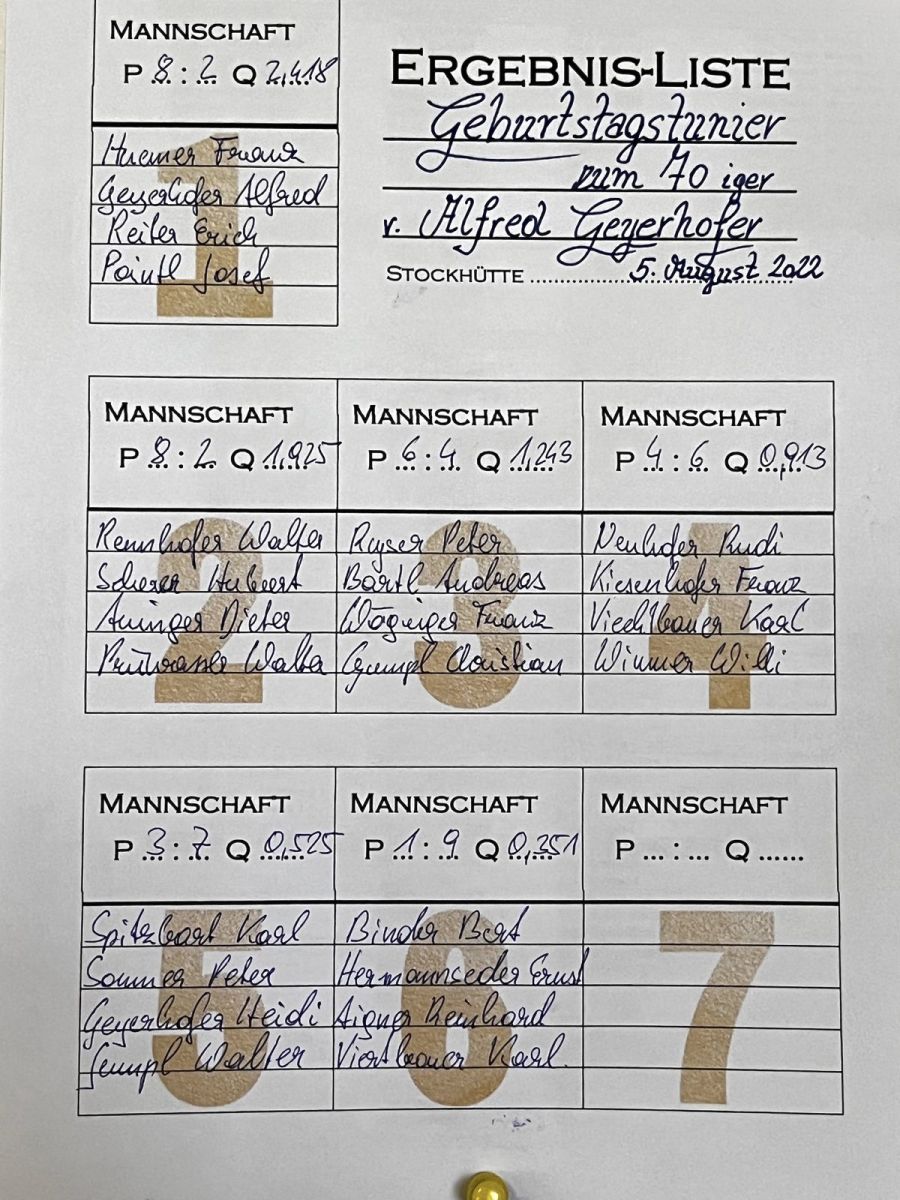 MANNSCHAFT
P 8 : 2 Q 2,418
Huemer Franz
Geyerhofer Alfred
Reiter Erich
Pointl Josef
1
ERGEBNIS-LISTE
Geburtstagstunier
zum 70 iger
v. Alfred Geyerhofer
STOCKHÜTTE 5. August 2022
MANNSCHAFT
P 8 : 2 Q 1,925
Rennhofer Walter
Scherer Hubert
Aninger Dieter
Walter
2
MANNSCHAFT
P 6 : 4 Q 1,243
Rayser Peter
Bartl Andreas
Franz
Gumpl Christian
3
MANNSCHAFT
P 4 : 6 Q 0,913
Neuhofer Rudi
Kiesenhofer Franz
Viechtbauer Karl
Wimmer Willi
4
MANNSCHAFT
P 3 : 7 Q 0,525
Spitzbart Karl
Sommer Peter
Geyerhofer Heidi
Gumpl Walter
5
MANNSCHAFT
P 1 : 9 Q 0,351
Binder Bert
Hermannseder Ernst
Aigner Reinhard
Viertbauer Karl.
6
MANNSCHAFT
P ... : ... Q ......
7